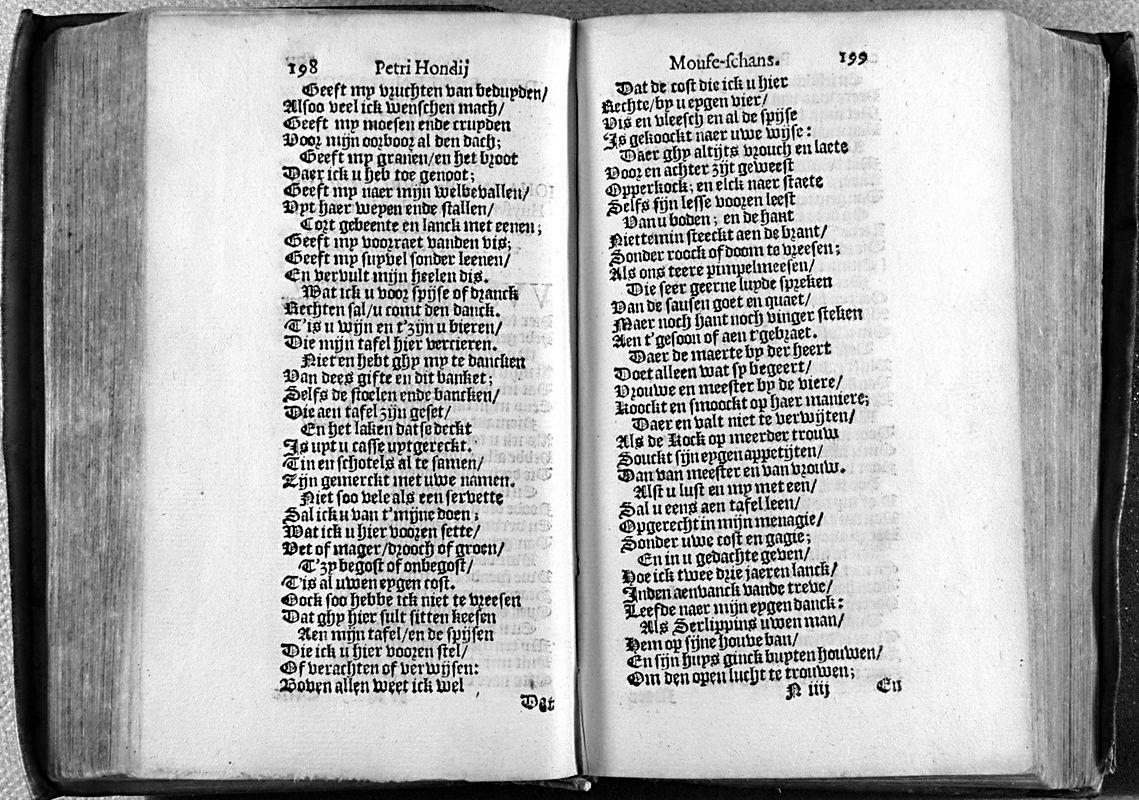 198 Petri Hondij
Geeft my vruchten van beduyden/
Alsoo veel ick wenschen mach/
Geeft my moesen ende cruyden
Voor mijn oorboor al den dach;
Geeft my granen/en het broot
Daer ick u heb toe genoot;
Geeft my naer mijn welbevallen/
Uyt haer weyen ende stallen/
Cort gebeente en lanck met eenen;
Geeft my voorraet vanden vis;
Geeft my suyvel sonder leenen/
En vervult mijn heelen dis.
Wat ick u voor spijse of dranck
Rechten sal/u comt den danck.
T'is u wijn en t'zijn u bieren/
Die mijn tafel hier vercieren.
Niet en hebt ghy my te dancken
Van dees gifte en dit banket;
Selfs de stoelen ende bancken/
Die aen tafel zijn geset/
En het laken datse deckt
Is uyt u casse uytgereckt.
Tin en schotels al te samen/
Zijn gemerckt met uwe namen.
Niet soo vele als een servette
Sal ick u van t'mijne doen;
Wat ick u hier vooren sette/
Vet of mager/drooch of groen/
T'zy begost of onbegost/
T'is al uwen eygen cost.
Oock soo hebbe ick niet te vreesen
Dat ghy hier sult sitten keesen
Aen mijn tafel/en de spijsen
Die ick u hier vooren stel/
Of verachten of verwijsen:
Boven allen weet ick wel
Dat
Mouse-schans. 199
Dat de cost die ick u hier
Rechte/by u eygen vier/
Vis en vleesch en al de spijse
Is gekoockt naer uwe wijse:
Daer ghy altijts vrouch en laete
Voor en achter zijt geweest
Opperkock; en elck naer staete
Selfs sijn lesse vooren leest
Van u boden; en de hant
Niettemin steeckt aen de brant/
Sonder roock of doom te vreesen;
Als ons teere pimpelmeesen/
Die seer geerne luyde spreken
Van de sausen goet en quaet/
Maer noch hant noch vinger steken
Aen t'gesoon of aen t'gebraet.
Daer de maerte by der heert
Doet alleen wat sy begeert/
Vrouwe en meester by de viere/
Koockt en smoockt op haer maniere;
Daer en valt niet te verwijten/
Als de Kock op meerder trouw
Souckt sijn eygen appetijten/
Dan van meester en van vrouw.
Alst u lust en my met een/
Sal u eens aen tafel leen/
Opgerecht in mijn menagie/
Sonder uwe cost en gagie;
En in u gedachte geven/
Hoe ick twee drie jaeren lanck/
Inden aenvanck vande treve/
Leefde naer mijn eygen danck:
Als Serlippins uwen man/
Hem op sijne houve ban/
En sijn huys ginck buyten houwen/
Om den open lucht te trouwen;
N iiij En